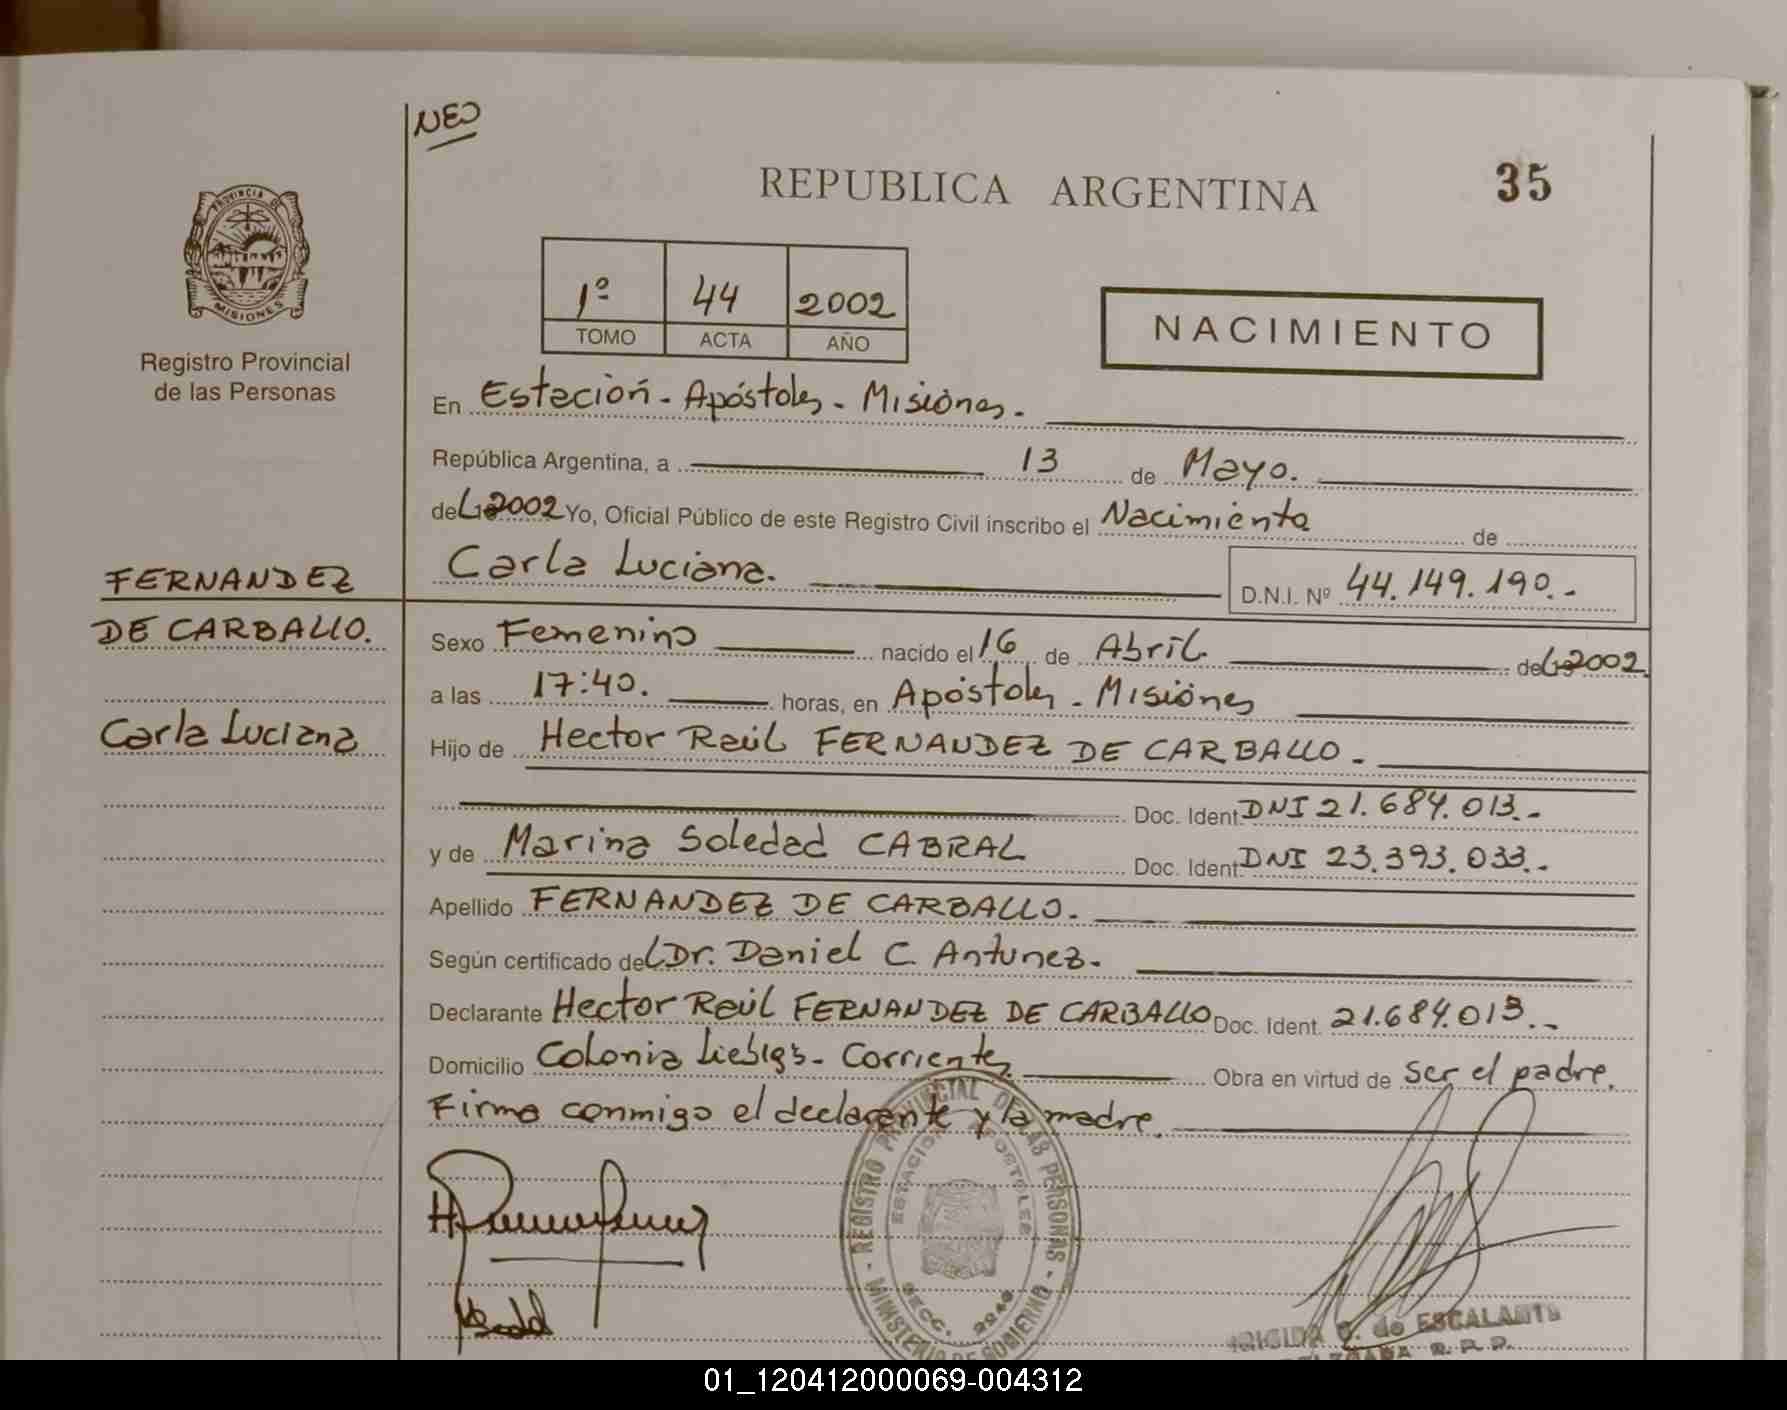 NEO
REPUBLICA ARGENTINA
35
PROVINCIA DE
MISIONES
Registro Provincial
de las Personas
1º 44 2002
TOMO ACTA AÑO
NACIMIENTO
En Estación - Apóstoles - Misiones.
República Argentina, a 13 de Mayo.
del 2002 Yo, Oficial Público de este Registro Civil inscribo el Nacimiento de
Carla Luciana. D.N.I. Nº 44.149.190.-
FERNANDEZ
DE CARBALLO.
Carla Luciana
Sexo Femenino nacido el 16 de Abril del 2002
a las 17:40. horas, en Apóstoles - Misiones
Hijo de Hector Raúl FERNANDEZ DE CARBALLO -
Doc. Ident. DNI 21.684.013.-
y de Marina Soledad CABRAL Doc. Ident. DNI 23.393.033.-
Apellido FERNANDEZ DE CARBALLO.
Según certificado del Dr. Daniel C. Antunez.
Declarante Hector Raúl FERNANDEZ DE CARBALLO Doc. Ident. 21.684.013.-
Domicilio Colonia Liebig's - Corrientes Obra en virtud de ser el padre.
Firma conmigo el declarante y la madre.
REGISTRO PROVINCIAL DE LAS PERSONAS - MINISTERIO DE GOBIERNO -
ESTACION APOSTOLES
SECC.
de ESCALANTE
R.P.P.
01_120412000069-004312